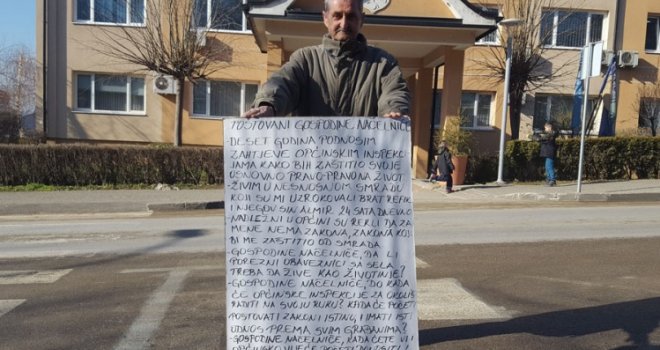 POŠTOVANI GOSPODINE NAČELNIČE
DESET GODINA PODNOSIM
ZAHTJEVE OPĆINSKIM INSPEKCI
JAMA KAKO BIH ZAŠTITIO SVOJE
OSNOVNO PRAVO-PRAVO NA ŽIVOT
-ŽIVIM U NESNOSNOM SMRADU
KOJI SU MI UZROKOVALI BRAT REFIK
I NJEGOV SIN ALMIR. 24 SATA DNEVNO
NADLEŽNI U OPĆINI SU REKLI DA ZA
MENE NEMA ZAKONA, ZAKONA KOJI
BI ME ZAŠTITIO OD SMRADA
-GOSPODINE NAČELNIČE, DA LI
POREZNI OBAVEZNICI SA SELA
TREBA DA ŽIVE KAO ŽIVOTINJE?
-GOSPODINE NAČELNIČE, DO KADA
ĆE OPĆINSKE INSPEKCIJE ZA OKOLIŠ
RADITI NA SVOJU RUKU? KADA ĆE POČETI
POŠTOVATI ZAKON I ISTINU, I IMATI IST
ODNOS PREMA SVIM GRAĐANIMA?
-GOSPODINE NAČELNIČE, KADA ĆETE VI I
OPĆINSKO VIJEĆE